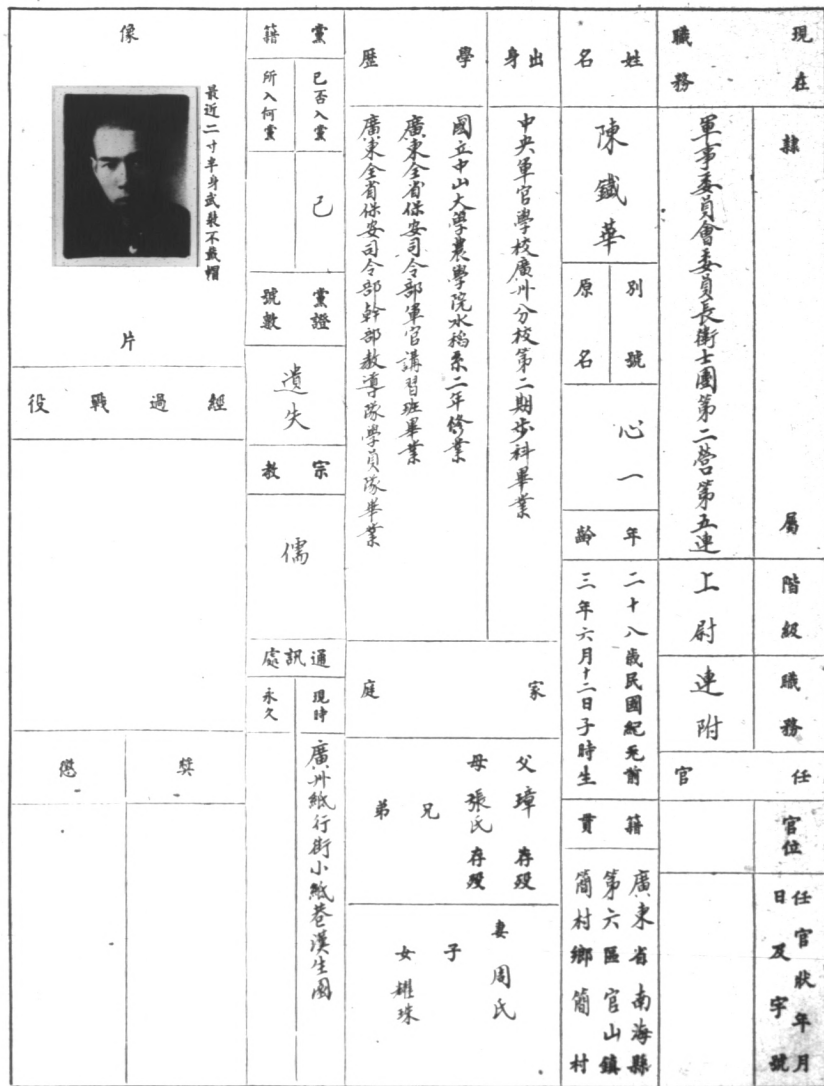 現在職務
隸屬
軍事委員會委員長衛士團第二營第五連
階級
上尉
職務
連附
任官
官位
任官狀年月日及字號
姓名
陳鐵華
別號
原名
心一
年齡
二十八歲民國紀元前
三年六月十二日子時生
籍貫
廣東省南海縣
第六區官山鎮
簡村鄉簡村
出身
中央軍官學校廣州分校第二期步科畢業
學歷
國立中山大學農學院水稻系二年修業
廣東全省保安司令部軍官講習班畢業
廣東全省保安司令部幹部教導隊學員隊畢業
家庭
父璋存歿
母張氏存歿
兄
弟
妻周氏
子
女耀珠
黨籍
已否入黨
所入何黨
已
黨證號數
遺失
宗教
儒
通訊處
現時
永久
廣州紙行街小紙巷漢生園
像片
最近二寸半身武裝不戴帽
經過戰役
獎
懲